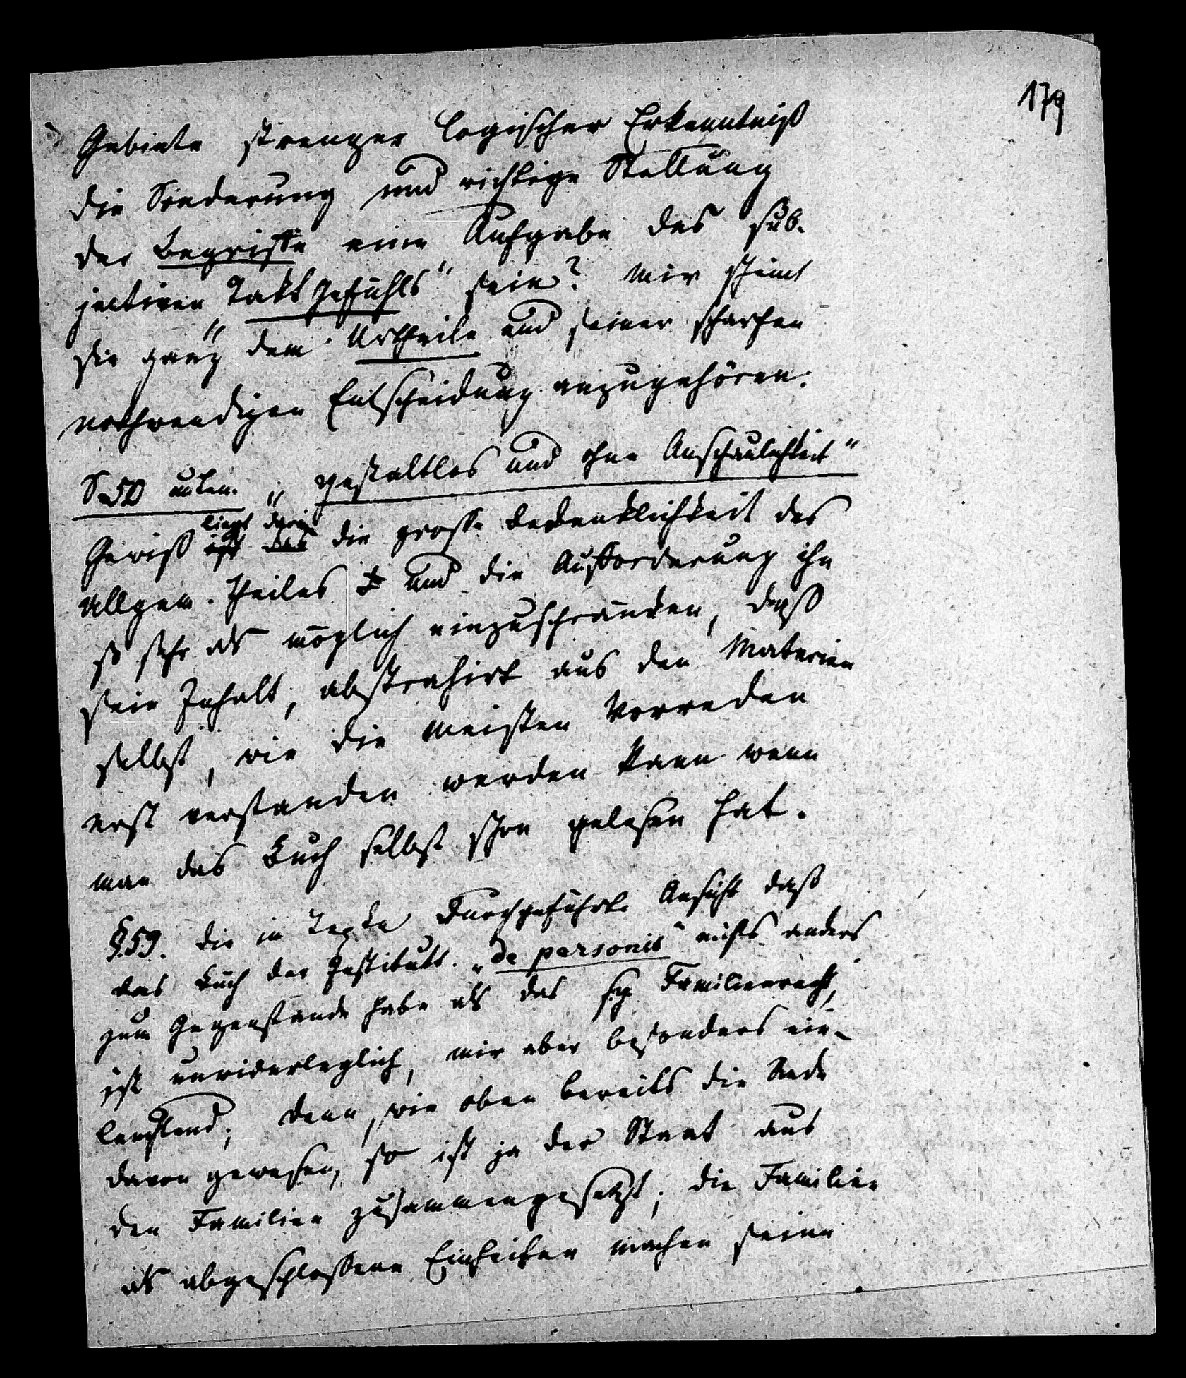 179
Gebiete strenger logischer Erkenntniß
die Sonderung und richtige Stellung
der Begriffe eine Aufgabe des sub-
jectiven „Taktgefühls“ sein? Mir scheint
sie ganz dem Urtheile und seiner scharfen
nothwendigen Entscheidung anzugehören.
S 50 unten. „gestaltlos und ohne Anschaulichkeit“
liegt darin
Gewiß ist das die grosse Bedenklichkeit des
Allgem. Theiles und die Aufforderung ihn
so sehr als möglich einzuschränken, daß
sein Inhalt, abstrahirt aus den Materien
selbst, wie die meisten Vorreden
erst verstanden werden kann wenn
man das Buch selbst schon gelesen hat.
§.59. die im Texte durchgeführte Ansicht daß
das Buch der Institutt. „de personis“ nichts anders
zum Gegenstande habe als das sg Familienrecht,
ist unwiderleglich, mir aber besonders ein-
leuchtend; denn, wie oben bereits die Rede
davon gewesen, so ist ja der Staat aus
den Familien zusammengesetzt; die Familien
als abgeschlossene Einheiten machen seine